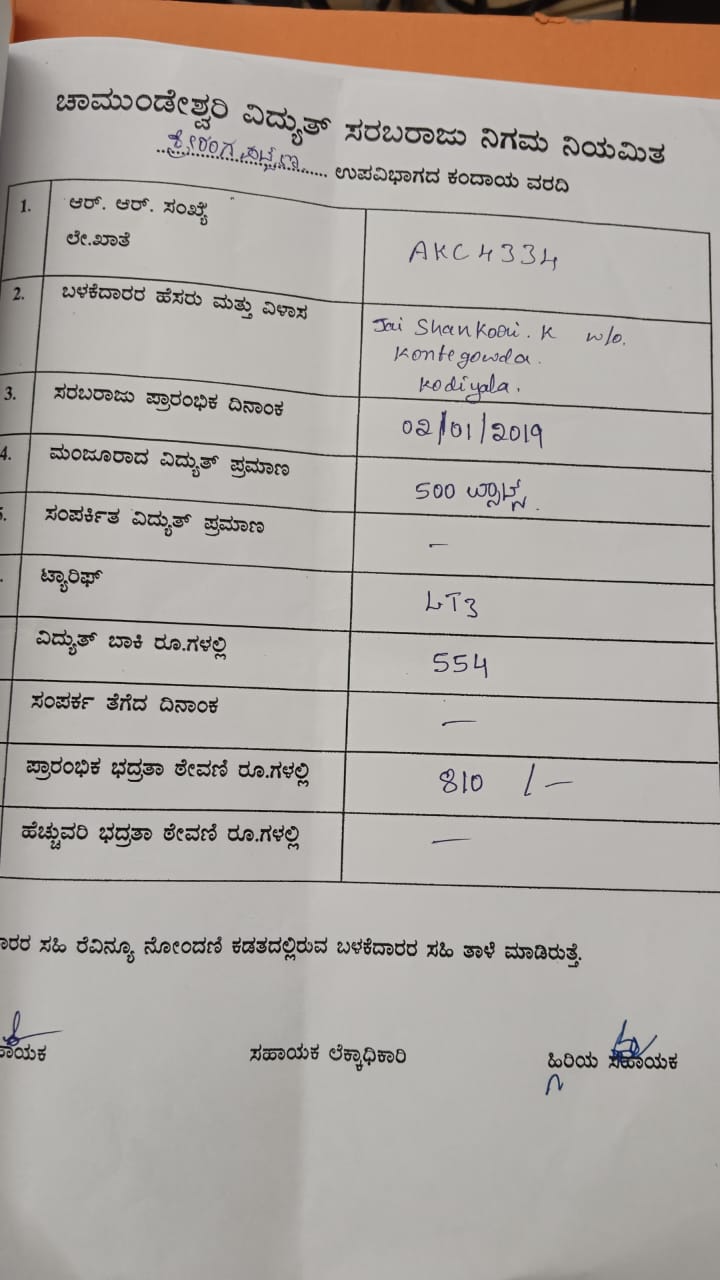 ಚಾಮುಂಡೇಶ್ವರಿ ವಿದ್ಯುತ್ ಸರಬರಾಜು ನಿಗಮ ನಿಯಮಿತ
ಶ್ರೀರಂಗಪಟ್ಟಣ ಉಪವಿಭಾಗದ ಕಂದಾಯ ವರದಿ
1. ಆರ್. ಆರ್. ಸಂಖ್ಯೆ
ಲೇ.ಖಾತೆ
AKC 4334
2. ಬಳಕೆದಾರರ ಹೆಸರು ಮತ್ತು ವಿಳಾಸ
Jai Shankari. K w/o.
Kontegowda.
Kodiyala.
3. ಸರಬರಾಜು ಪ್ರಾರಂಭಿಕ ದಿನಾಂಕ
02/01/2019
4. ಮಂಜೂರಾದ ವಿದ್ಯುತ್ ಪ್ರಮಾಣ
500 ವ್ಯಾಟ್ಸ್.
ಸಂಪರ್ಕಿತ ವಿದ್ಯುತ್ ಪ್ರಮಾಣ
–
ಟ್ಯಾರಿಫ್
LT3
ವಿದ್ಯುತ್ ಬಾಕಿ ರೂ.ಗಳಲ್ಲಿ
554
ಸಂಪರ್ಕ ತೆಗೆದ ದಿನಾಂಕ
–
ಪ್ರಾರಂಭಿಕ ಭದ್ರತಾ ಠೇವಣಿ ರೂ.ಗಳಲ್ಲಿ
810 /–
ಹೆಚ್ಚುವರಿ ಭದ್ರತಾ ಠೇವಣಿ ರೂ.ಗಳಲ್ಲಿ
–
ಾರರ ಸಹಿ ರೆವಿನ್ಯೂ ನೋಂದಣಿ ಕಡತದಲ್ಲಿರುವ ಬಳಕೆದಾರರ ಸಹಿ ತಾಳೆ ಮಾಡಿರುತ್ತೆ.
ಹಾಯಕ ಸಹಾಯಕ ಲೆಕ್ಕಾಧಿಕಾರಿ ಹಿರಿಯ ಸಹಾಯಕ